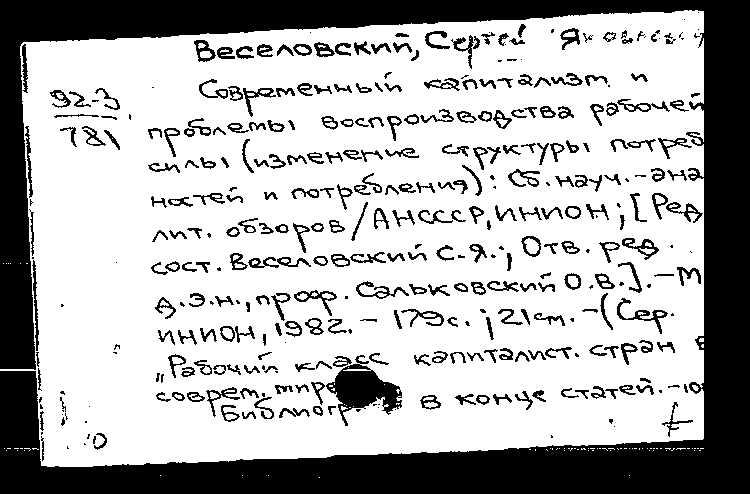 Веселовский, Сергей Яковлевич
92-3
781
Современный капитализм и
проблемы воспроизводства рабочей
силы (изменение структуры потреб
ностей и потребления): Сб. науч.-ана
лит. обзоров/АНСССР, ИНИОН; [Ред
сост. Веселовский С.Я.; Отв. ред.
д.э.н., проф. Сальковский О.В.]. - М
ИНИОН, 1982. - 179с.; 21см. - (Сер.
"Рабочий класс капиталист. стран в
соврем. мире
Библиогр в конце статей. -